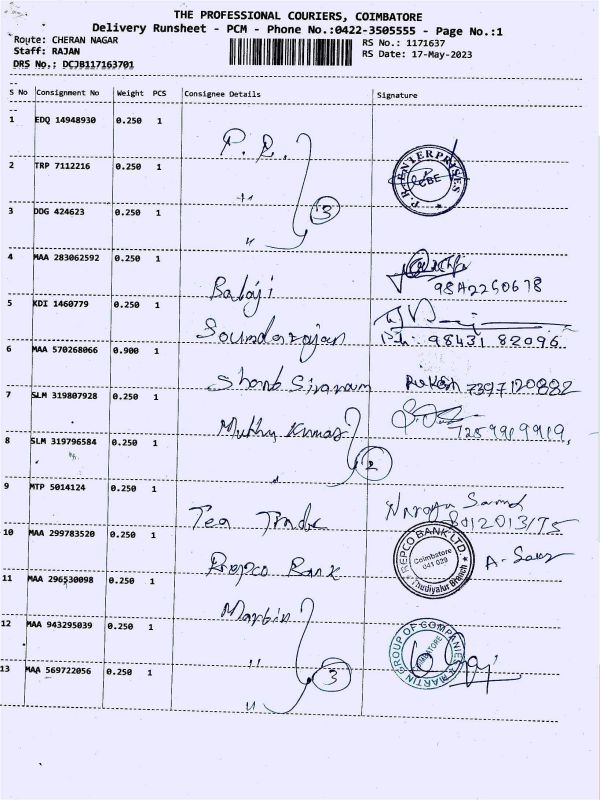 THE PROFESSIONAL COURIERS, COIMBATORE
Delivery Runsheet - PCM - Phone No.:0422-3505555 - Page No.:1
Route: CHERAN NAGAR
RS No.: 1171637
Staff: RAJAN
RS Date: 17-May-2023
DRS No.: DCJB117163701
S No Consignment No Weight PCS Consignee Details Signature
1 EDQ 14948930 0.250 1 P. R. P.R ENTERPRISES CBE
2 TRP 7112216 0.250 1 "
3 DDG 424623 0.250 1 " 3
4 MAA 283062592 0.250 1 Balaji
5 KDI 1460779 0.250 1 Soundarajan Ph: 98431 82096
6 MAA 570268066 0.900 1 7397120882
7 SLM 319807928 0.250 1 Muthu Kumar
8 SLM 319796584 0.250 1 " 2
9 MTP 5014124 0.250 1 Tea Trade
10 MAA 299783520 0.250 1 Repco Bank REPCO BANK LTD Coimbatore 641 029 Thudiyalur Branch
11 MAA 296530098 0.250 1 Martin
12 MAA 943295039 0.250 1 " MARTIN GROUP OF COMPANIES COIMBATORE
13 MAA 569722056 0.250 1 " 3